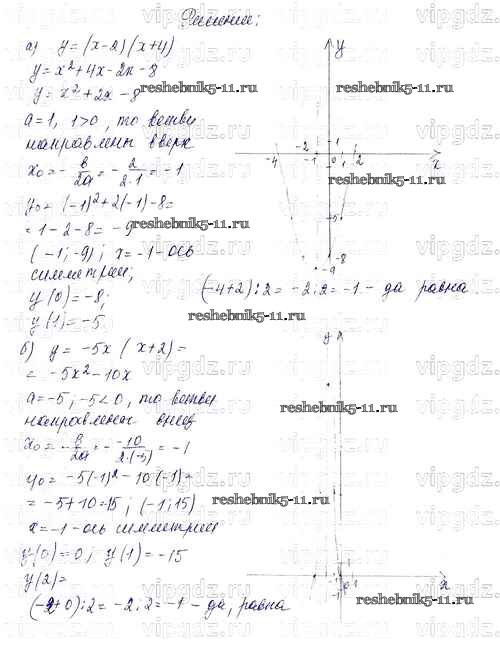 Решение:
а) y = (x-2)(x+4)
y = x² + 4x - 2x - 8
y = x² + 2x - 8
a = 1, 1>0, то ветви
направлены вверх
x₀ = -в/2а = -2/2·1 = -1
y₀ = (-1)² + 2(-1) - 8 =
= 1 - 2 - 8 = -9
(-1; -9); x = -1 - ось
симметрии;
y(0) = -8;
y(1) = -5
(-4+2):2 = -2:2 = -1 - да равна.
б) y = -5x(x+2) =
= -5x² - 10x
a = -5; -5<0, то ветви
направлены вниз
x₀ = -в/2а = -(-10)/2·(-5) = -1
y₀ = -5(-1)² - 10·(-1) =
= -5+10=15; (-1; 15)
x = -1 - ось симметрии
y(0) = 0; y(1) = -15
y(2) =
(-2+0):2 = -2:2 = -1 - да, равна
y
-4 -2 -1 0 1 2 x
1
-5
-8
-9
y
-1 0 1 x
reshebnik5-11.ru
reshebnik5-11.ru
reshebnik5-11.ru
reshebnik5-11.ru
reshebnik5-11.ru
reshebnik5-11.ru
reshebnik5-11.ru
vipgdz.ru